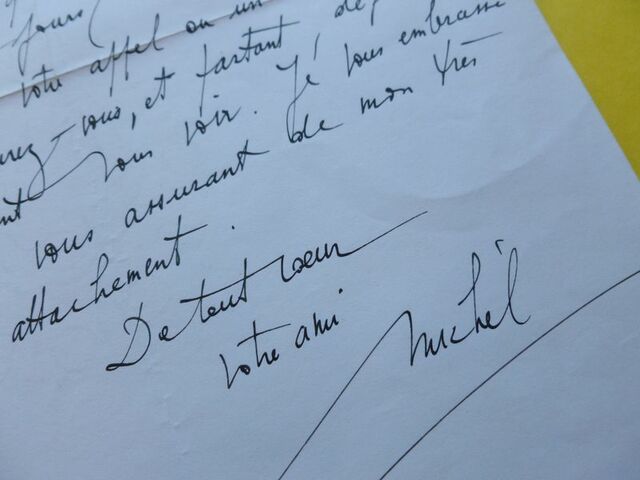 jours
votre appel ou un
-vous, et partant, dép
vous voir. Je vous embrasse
vous assurant de mon très
attachement.
De tout coeur
votre ami
Michel